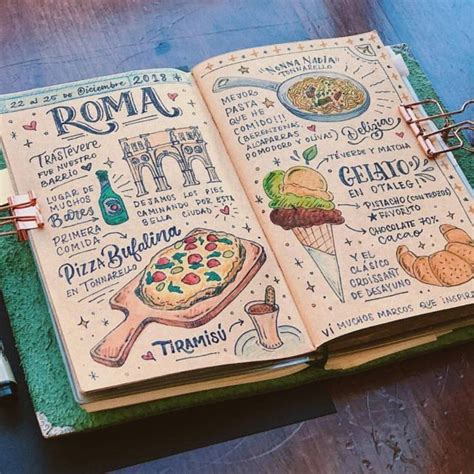 22 al 25 de Diciembre 2018
ROMA
TRASTEVERE
FUE NUESTRO
BARRIO
LUGAR DE
MUCHOS
Bares
PRIMERA
COMIDA
DEJAMOS LOS PIES
CAMINANDO POR ESTA
BELLA CIUDAD
PIZZA Bufalina
EN TONNARELLO
TIRAMISÚ
Nonna Nadia
TONNARELLO
MEJOR
PASTA
QUE HE
COMIDO!!!
(BERENJENAS,
ALCAPARRAS,
POMODORO Y OLIVAS)
Delizia
TÉ VERDE Y MATCHA
GELATO
EN OTALEG!
PISTACHO (CON TROZOS)
FAVORITO
CHOCOLATE 70%
CACAO
Y EL
CLÁSICO
CROISSANT
DE DESAYUNO
VI MUCHOS MARCOS QUE INSPIRA